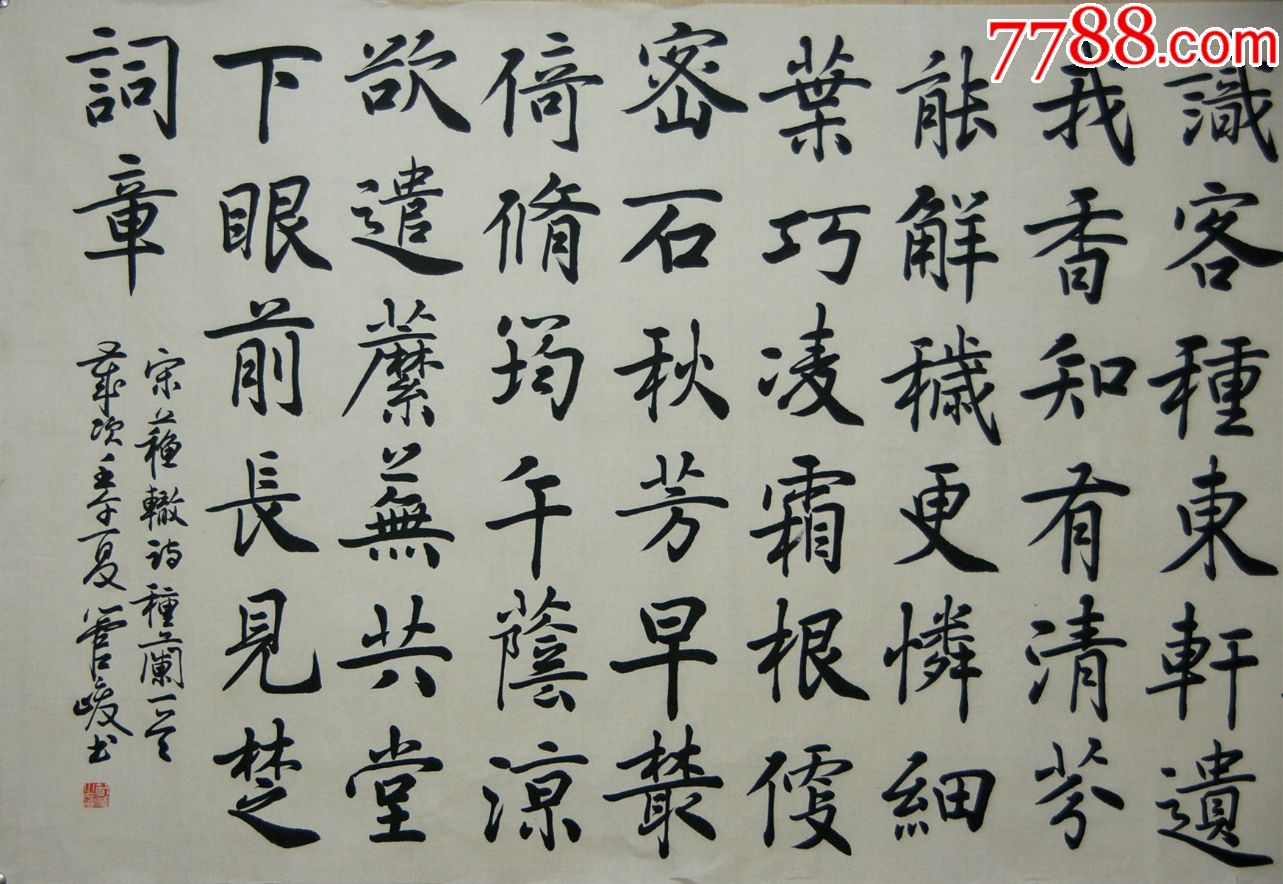 7788.com
識客種東軒遺
我香知有清芬
能解穢更憐細
葉巧凌霜根便
密石秋芳早叢
倚脩筠午蔭涼
欲遣蘼蕪共堂
下眼前長見楚
詞章
宋蘇轍詩種蘭一首
歲次壬午夏管峻書